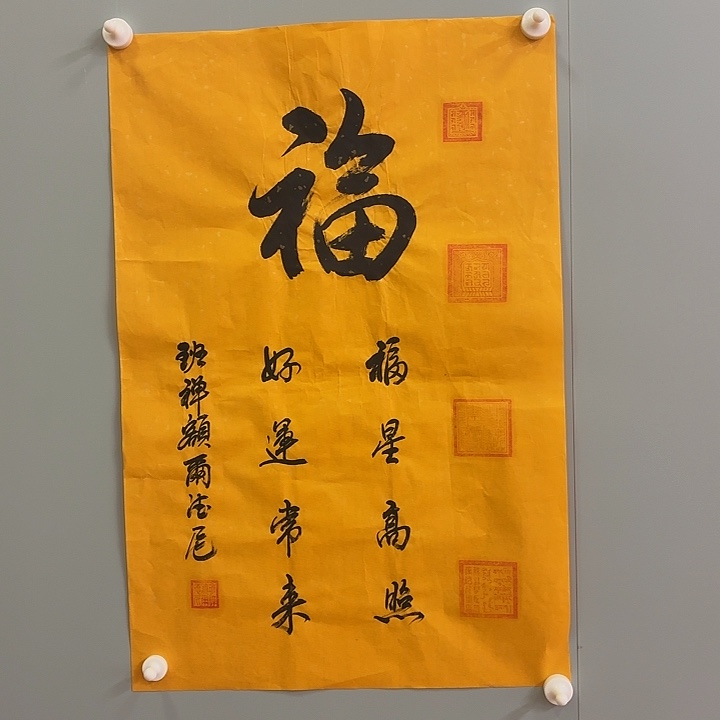 福
福星高照
好運常来
班禅額爾德尼